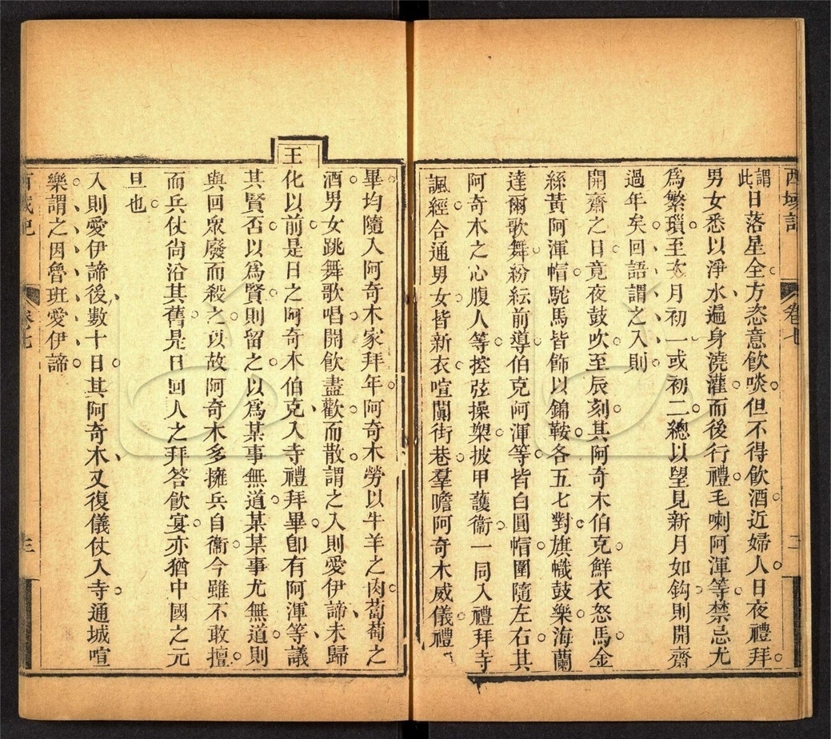 西域記
卷七
二
謂此日落星全方恣意飲啖但不得飲酒近婦人日夜禮拜
男女悉以淨水遍身澆灌而後行禮毛喇阿渾等禁忌尤
為繁瑣至次月初一或初二總以望見新月如鈎則開齋
過年矣回語謂之入則
開齋之日竟夜鼓吹至辰刻其阿奇木伯克鮮衣怒馬金
絲黃阿渾帽駝馬皆飾以錦鞍各五七對旗幟鼓樂海蘭
達爾歌舞紛紜前導伯克阿渾等皆白圓帽圍隨左右其
阿奇木之心腹人等控弦操架披甲護衞一同入禮拜寺
諷經合通男女皆新衣喧闐街巷羣瞻阿奇木威儀禮
畢均隨入阿奇木家拜年阿奇木勞以牛羊之肉萄萄之
酒男女跳舞歌唱開飲盡歡而散謂之入則愛伊諦未歸
王化以前是日之阿奇木伯克入寺禮拜畢卽有阿渾等議
其賢否以爲賢則留之以爲某事無道某某事尤無道則
與回眾廢而殺之以故阿奇木多擁兵自衞今雖不敢擅
而兵仗尙沿其舊是日回人之拜答飲宴亦猶中國之元
旦也
入則愛伊諦後數十日其阿奇木又復儀仗入寺通城喧
樂謂之因魯班愛伊諦
西域記
卷七
三